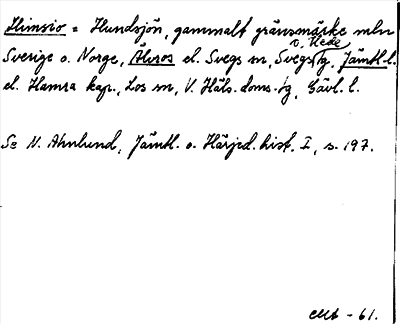 Himsio = Hundsjön, gammalt gränsmärke mln
Sverige o. Norge, Älvros el. Svegs sn, Svegs o. Hede tg, Jämtl. l.
el. Hamra kap., Los sn, V. Häls. doms.-tg, Gävl. l.
Se N. Ahnlund, Jämtl. o. Härjed. hist. I, s. 197.
- 61.